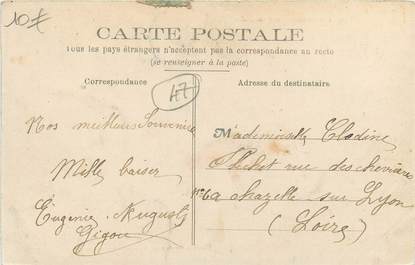 10€
CARTE POSTALE
Tous les pays étrangers n'acceptent pas la correspondance au recto
(se renseigner à la poste)
Correspondance
Adresse du destinataire
47
Nos meilleurs Souvenirs
Mille baiser
Eugenie Auguste
Gigou
Mademoiselle Clodine
rue des
a chazelle sur Lyon
(Loire)